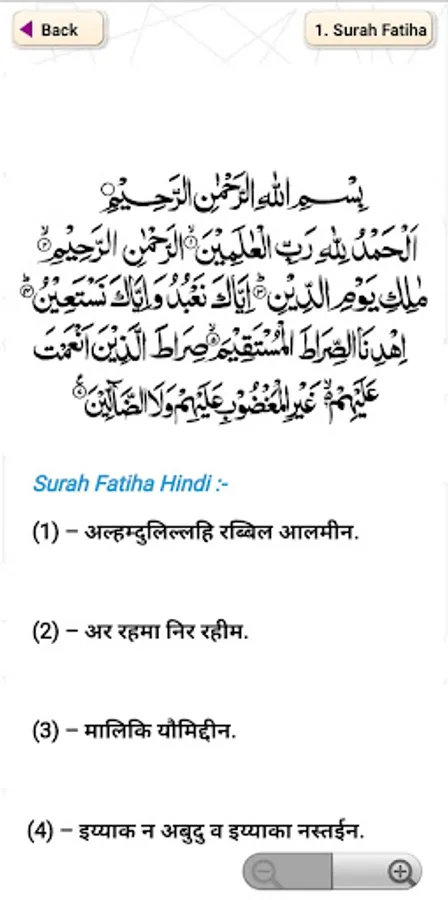 Back
1. Surah Fatiha
بِسْمِ اللهِ الرَّحْمٰنِ الرَّحِيْمِ
اَلْحَمْدُ لِلّٰهِ رَبِّ الْعٰلَمِيْنَ ۙ﴿۱﴾ الرَّحْمٰنِ الرَّحِيْمِ ۙ﴿۲﴾
مٰلِكِ يَوْمِ الدِّيْنِ ؕ﴿۳﴾ اِيَّاكَ نَعْبُدُ وَاِيَّاكَ نَسْتَعِيْنُ ؕ﴿۴﴾
اِهْدِنَا الصِّرَاطَ الْمُسْتَقِيْمَ ۙ﴿۵﴾ صِرَاطَ الَّذِيْنَ اَنْعَمْتَ
عَلَيْهِمْ ۙ﴿۶﴾ غَيْرِ الْمَغْضُوْبِ عَلَيْهِمْ وَلَا الضَّآلِّيْنَ ﴿۷﴾
Surah Fatiha Hindi :-
(1) – अल्हम्दुलिल्लहि रब्बिल आलमीन.
(2) – अर रहमा निर रहीम.
(3) – मालिकि यौमिद्दीन.
(4) – इय्याक न अबुदु व इय्याका नस्तईन.